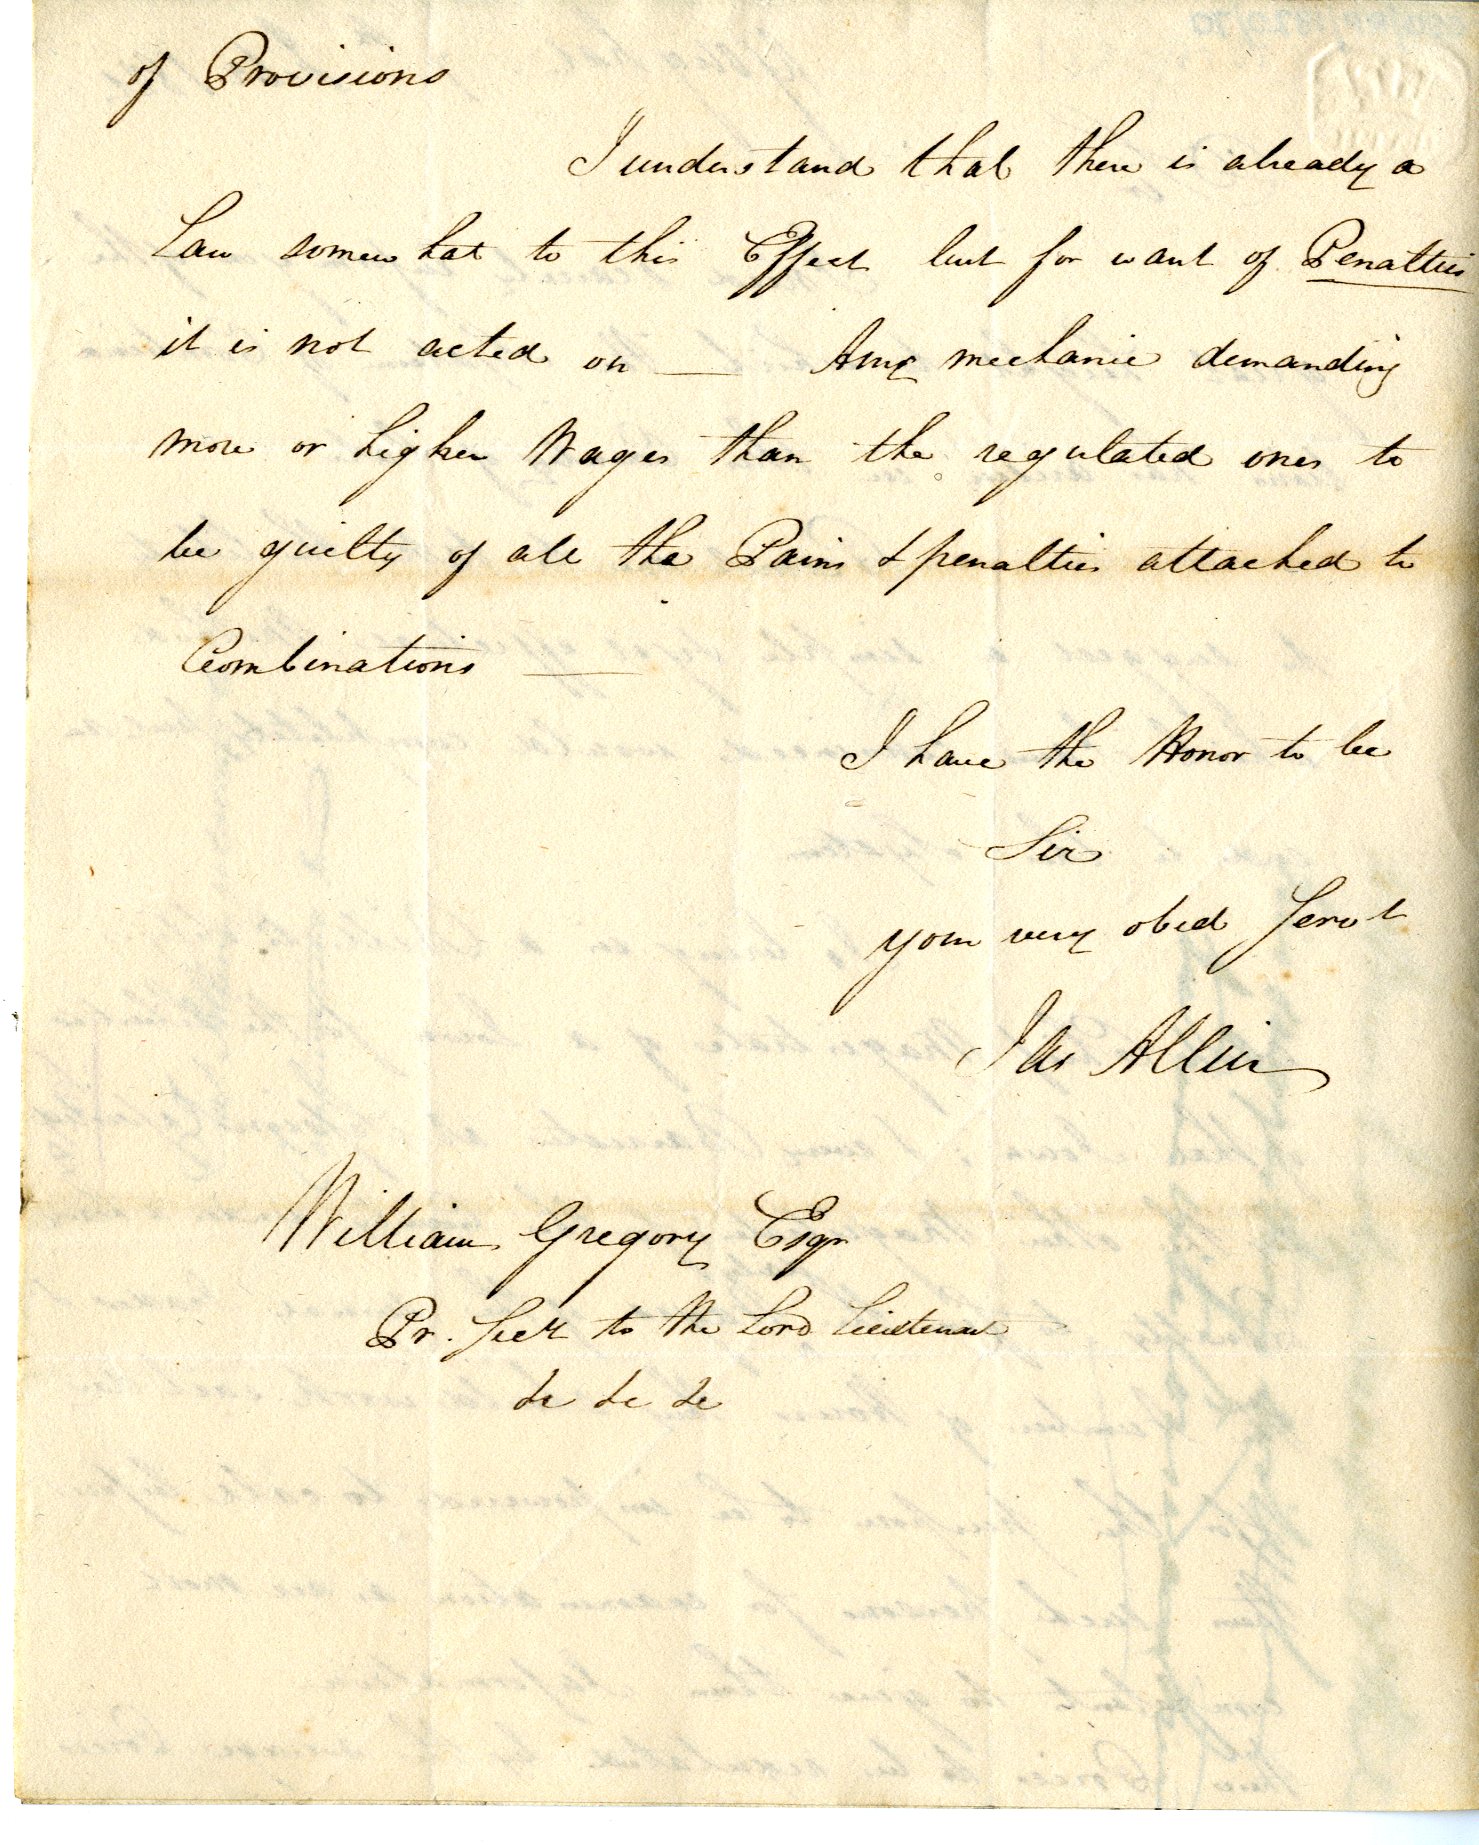 of Provisions
I understand that there is already a
Law somewhat to this Effect but for want of Penalties
it is not acted on — Any mechanic demanding
more or higher Wages than the regulated ones to
be guilty of all the Pains & penalties attached to
Combinations —
I have the Honor to be
Sir
your very obed Servt
Jas Allin
William Gregory Esqr
Pr. Secy to the Lord Lieutenant
&c &c &c